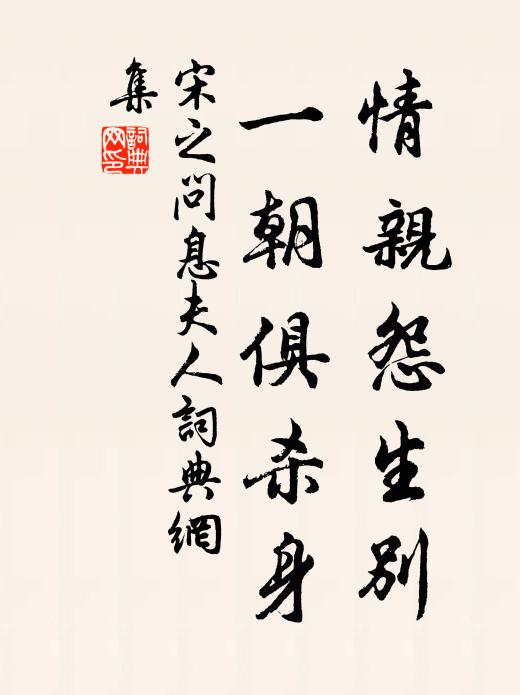 情親怨生別
一朝俱杀身
宋之問息夫人詞典網
集
詞典网印